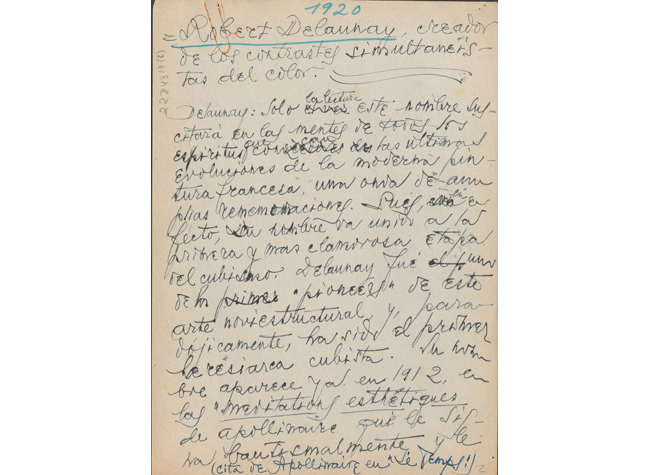 1920
Robert Delaunay, creador
de los contrastes simultaneís-
tas del color.
22243/1(6)
la lectura
Delaunay: Solo este nombre sus-
citará en las mentes de todos los
espíritus que conocen las últimas
evoluciones de la moderna pin-
tura francesa, una onda de am-
plias rememoraciones. Pues, en e-
fecto, su nombre va unido a la
primera y mas clamorosa etapa
del cubismo Delaunay fué uno
de los "pioneers" de este
arte noviestructural y, para-
dójicamente, ha sido el primer
heresiarca cubista. Su nom
bre aparece ya en 1912, en
las "Meditations esthétiques
de Apollinaire que le sig-
na bautismalmente y le
(cita de Apollinaire en "Le Temps")